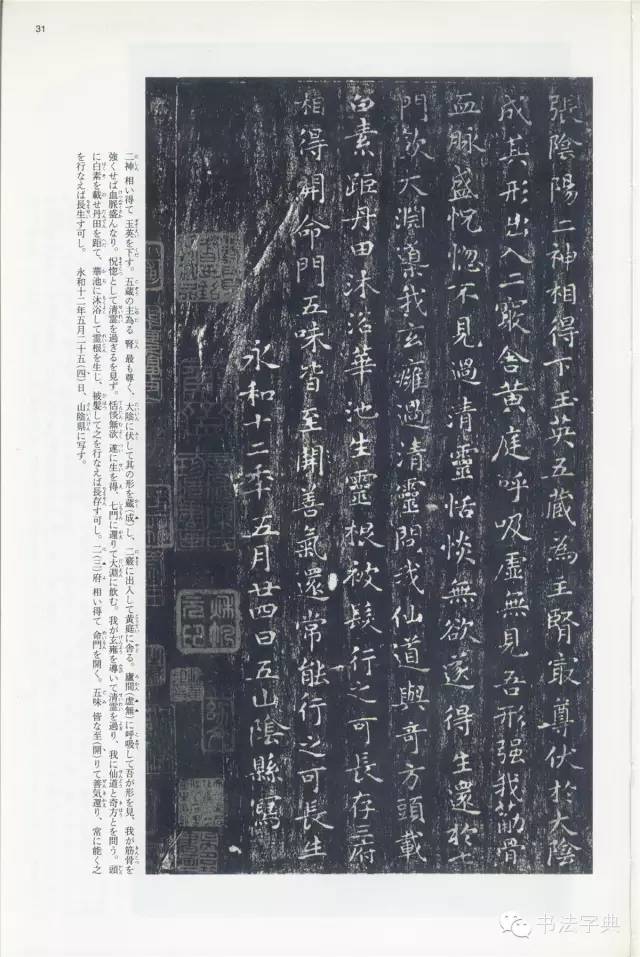 31
張陰陽二神相得下玉英五藏為主腎最尊伏於大陰
成其形出入二竅舍黃庭呼吸虛無見吾形强我筋骨
血脉盛怳惚不見過清靈恬惔無欲遂得生還於七
門飲大淵我玄癰過清靈問我仙道與奇方頭載
白素距丹田沐浴華池生靈根被髮行之可長存三府
相得開命門五味皆至開善氣還常能行之可長生
永和十二年五月廿四日五山陰縣寫
二神 相い得て 玉英を下す。五蔵の主為る 腎 最も尊く、大陰に伏して其の形を蔵(成)し、二竅に出入して黄庭に舎る。廬間(虚無)に呼吸して吾が形を見、我が筋骨を
強くせば血脈盛んなり。怳惚として清霊を過ぎるを見ず。恬惔無欲 遂に生を得、七門に還りて大淵に飲む。我が玄雍を導いて清霊を過り、我に仙道と奇方とを問う。頭
に白素を載せ丹田を距て、華池に沐浴して霊根を生じ、被髪して之を行なえば長存す可し。二(三)府 相い得て 命門を開く。五味 皆な至(開)りて善気還り、常に能く之
を行なえば長生す可し。 永和十二年五月二十五(四)日、山陰県に写す。
书法字典